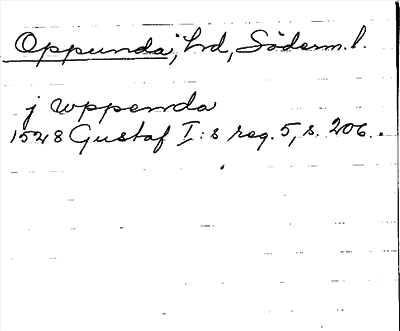 Oppunda, hd, Söderm. l.
j wppenda
1528 Gustaf I:s reg. 5, s. 206.